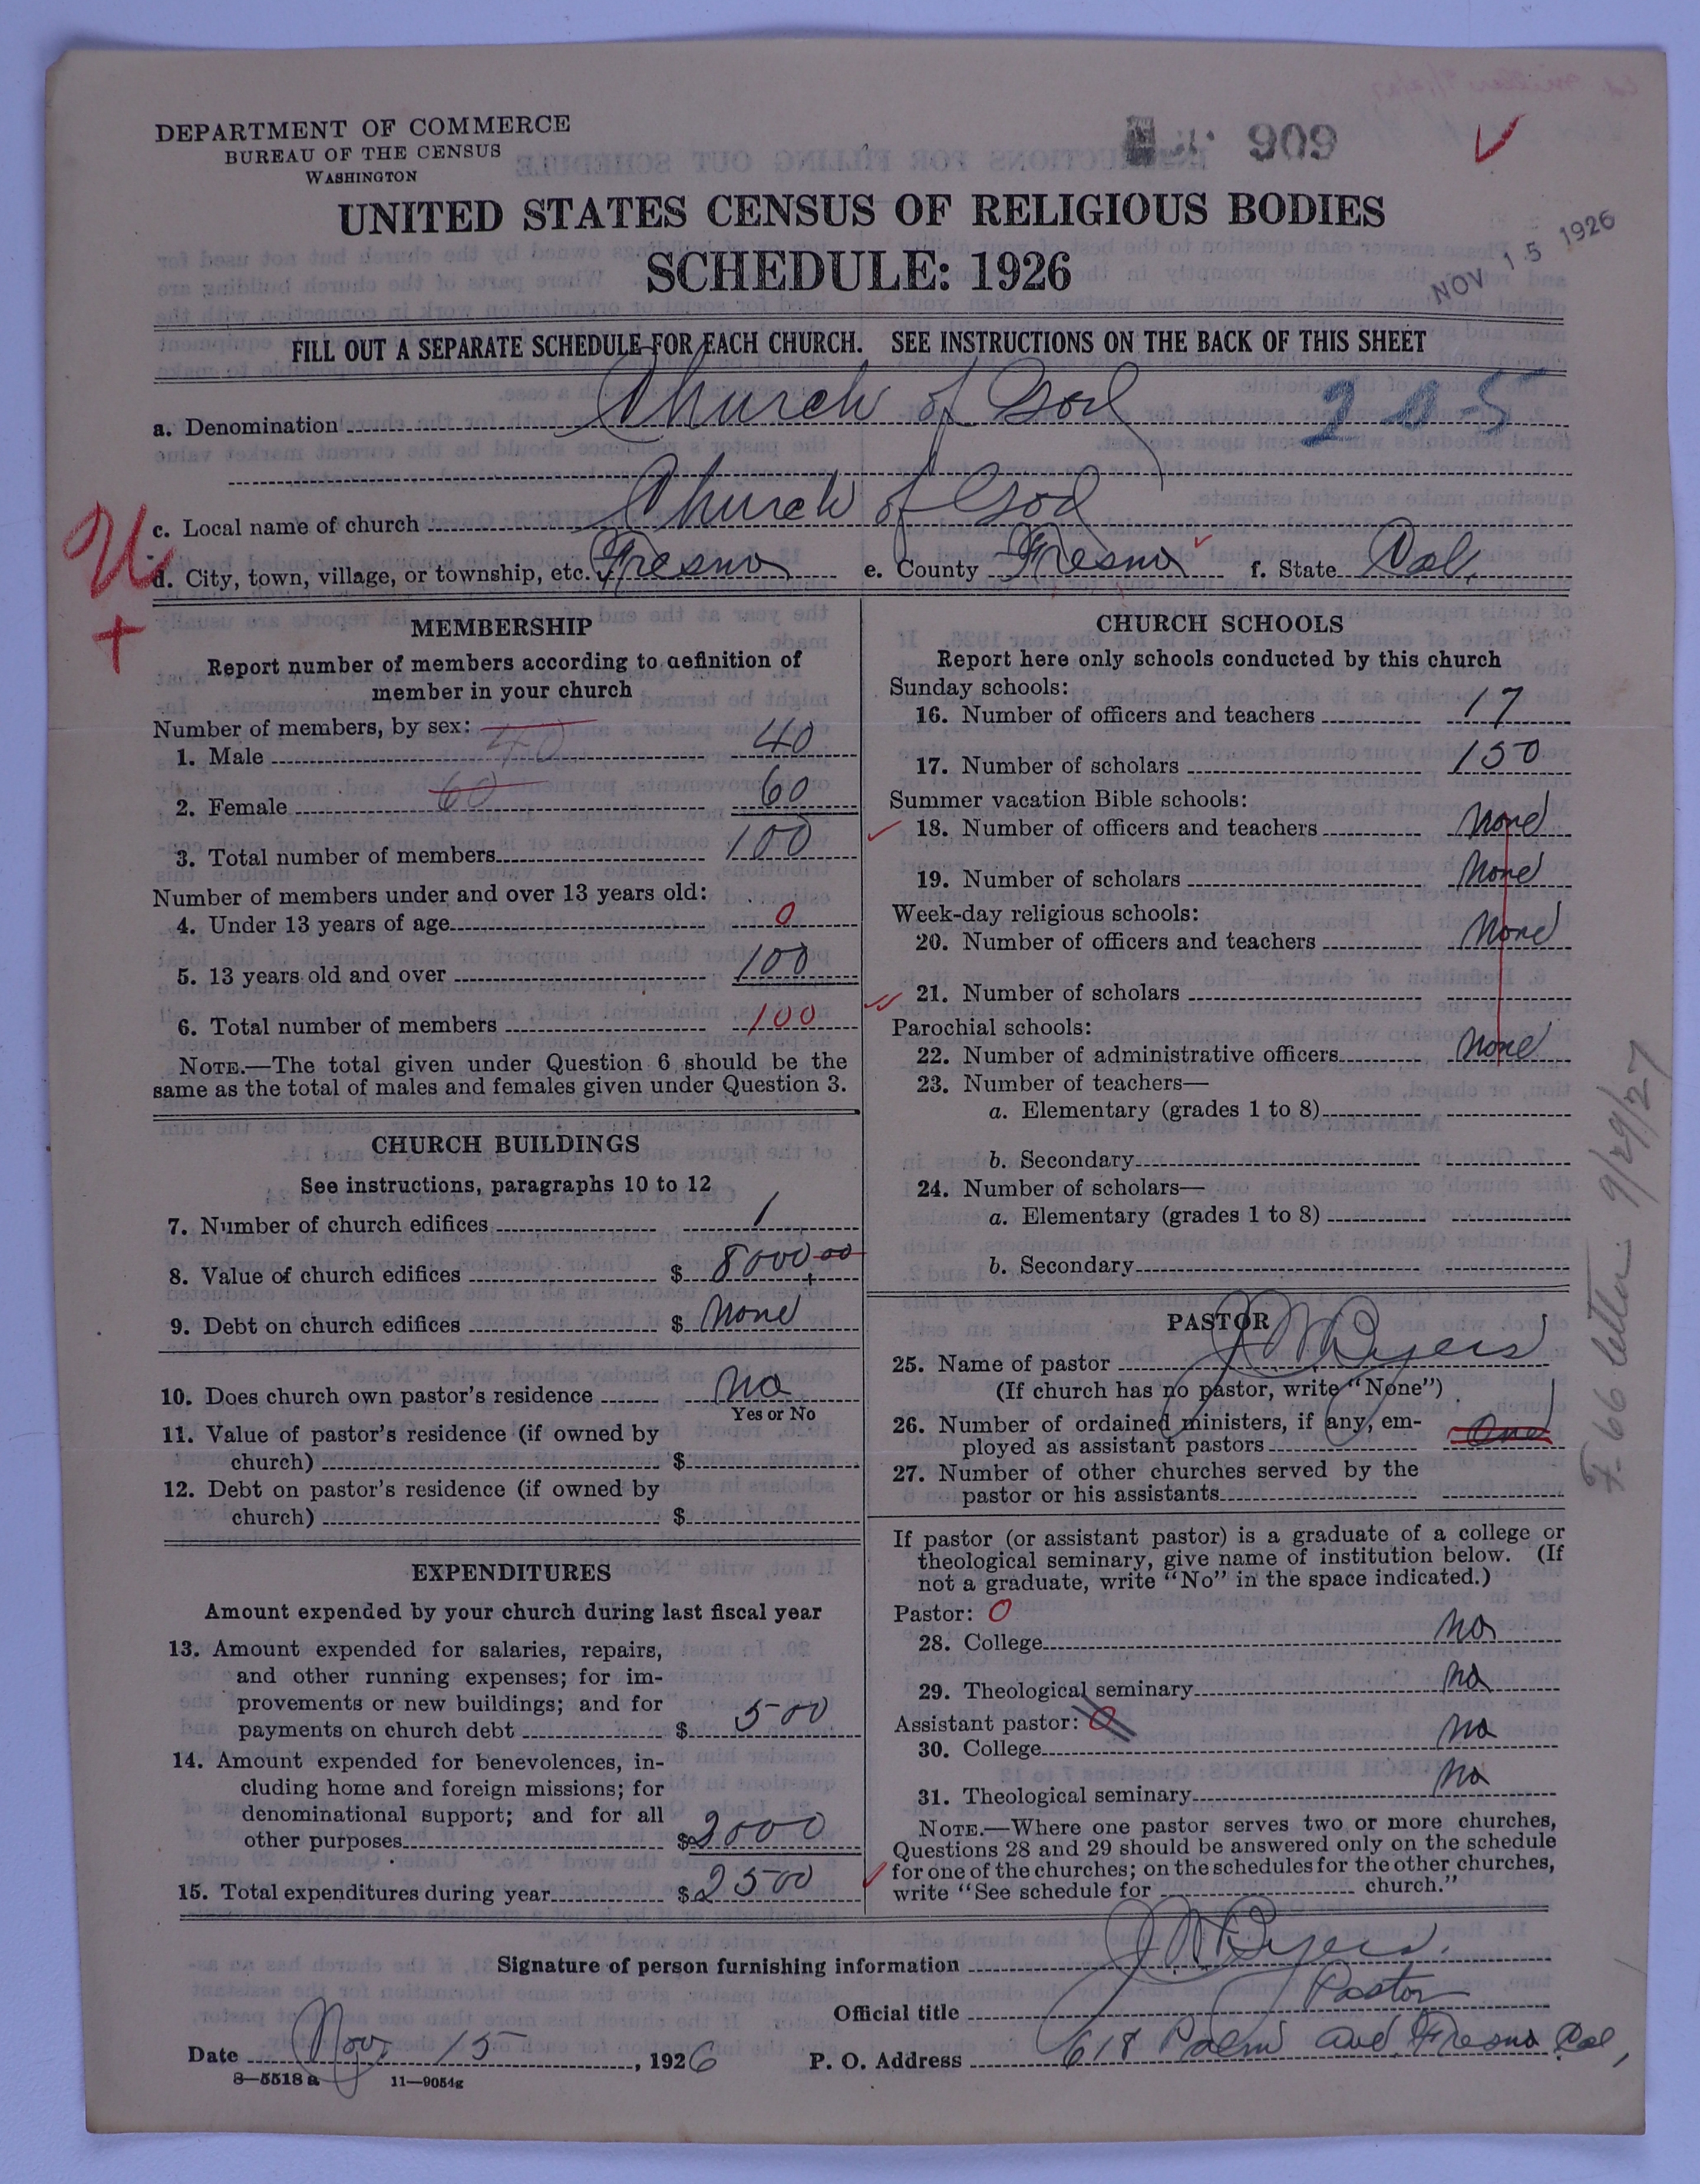 DEPARTMENT OF COMMERCE
BUREAU OF THE CENSUS
WASHINGTON
909
NOV 15 1926
UNITED STATES CENSUS OF RELIGIOUS BODIES
SCHEDULE: 1926
FILL OUT A SEPARATE SCHEDULE FOR EACH CHURCH. SEE INSTRUCTIONS ON THE BACK OF THIS SHEET
a. Denomination Church of God 205
c. Local name of church Church of God
d. City, town, village, or township, etc. Fresno e. County Fresno f. State Cal.
MEMBERSHIP
Report number of members according to definition of
member in your church
Number of members, by sex:
1. Male 40 40
2. Female 60 60
3. Total number of members 100
Number of members under and over 13 years old:
4. Under 13 years of age 0
5. 13 years old and over 100
6. Total number of members 100
NOTE.—The total given under Question 6 should be the
same as the total of males and females given under Question 3.
CHURCH BUILDINGS
See instructions, paragraphs 10 to 12
7. Number of church edifices 1
8. Value of church edifices $ 8000.00
9. Debt on church edifices $ None
10. Does church own pastor's residence No
Yes or No
11. Value of pastor's residence (if owned by
church) $
12. Debt on pastor's residence (if owned by
church) $
EXPENDITURES
Amount expended by your church during last fiscal year
13. Amount expended for salaries, repairs,
and other running expenses; for im-
provements or new buildings; and for
payments on church debt $ 500
14. Amount expended for benevolences, in-
cluding home and foreign missions; for
denominational support; and for all
other purposes $ 2000
15. Total expenditures during year $ 2500
CHURCH SCHOOLS
Report here only schools conducted by this church
Sunday schools:
16. Number of officers and teachers 17
17. Number of scholars 150
Summer vacation Bible schools:
18. Number of officers and teachers None
19. Number of scholars None
Week-day religious schools:
20. Number of officers and teachers None
21. Number of scholars
Parochial schools:
22. Number of administrative officers None
23. Number of teachers—
a. Elementary (grades 1 to 8)
b. Secondary
24. Number of scholars—
a. Elementary (grades 1 to 8)
b. Secondary
PASTOR
25. Name of pastor J W Byers
(If church has no pastor, write "None")
26. Number of ordained ministers, if any, em-
ployed as assistant pastors One
27. Number of other churches served by the
pastor or his assistants
If pastor (or assistant pastor) is a graduate of a college or
theological seminary, give name of institution below. (If
not a graduate, write "No" in the space indicated.)
Pastor: 0
28. College No
29. Theological seminary No
Assistant pastor: 0
30. College No
31. Theological seminary No
NOTE.—Where one pastor serves two or more churches,
Questions 28 and 29 should be answered only on the schedule
for one of the churches; on the schedules for the other churches,
write "See schedule for church."
F-66 letter 9/29/27
Signature of person furnishing information J W Byers.
Official title Pastor
Date Nov 15, 1926 P. O. Address 618 Palm Ave. Fresno Cal,
8—5518 a 11—9054g